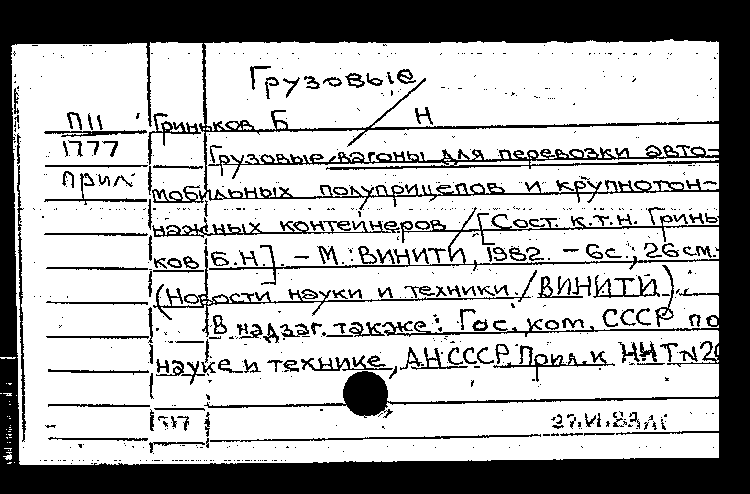 Грузовые
П11 Гриньков Б Н
1777 Грузовые вагоны для перевозки авто-
прил мобильных полуприцепов и крупнотон-
нажных контейнеров [Сост. к.т.н. Гринь-
ков Б.Н.]. – М.: ВИНИТИ, 1982. – 6с.; 26см.
(Новости науки и техники / ВИНИТИ).
В надзаг. также: Гос. ком. СССР по
науке и технике, АН СССР. Прил. к ННТ N20
27.VI.83